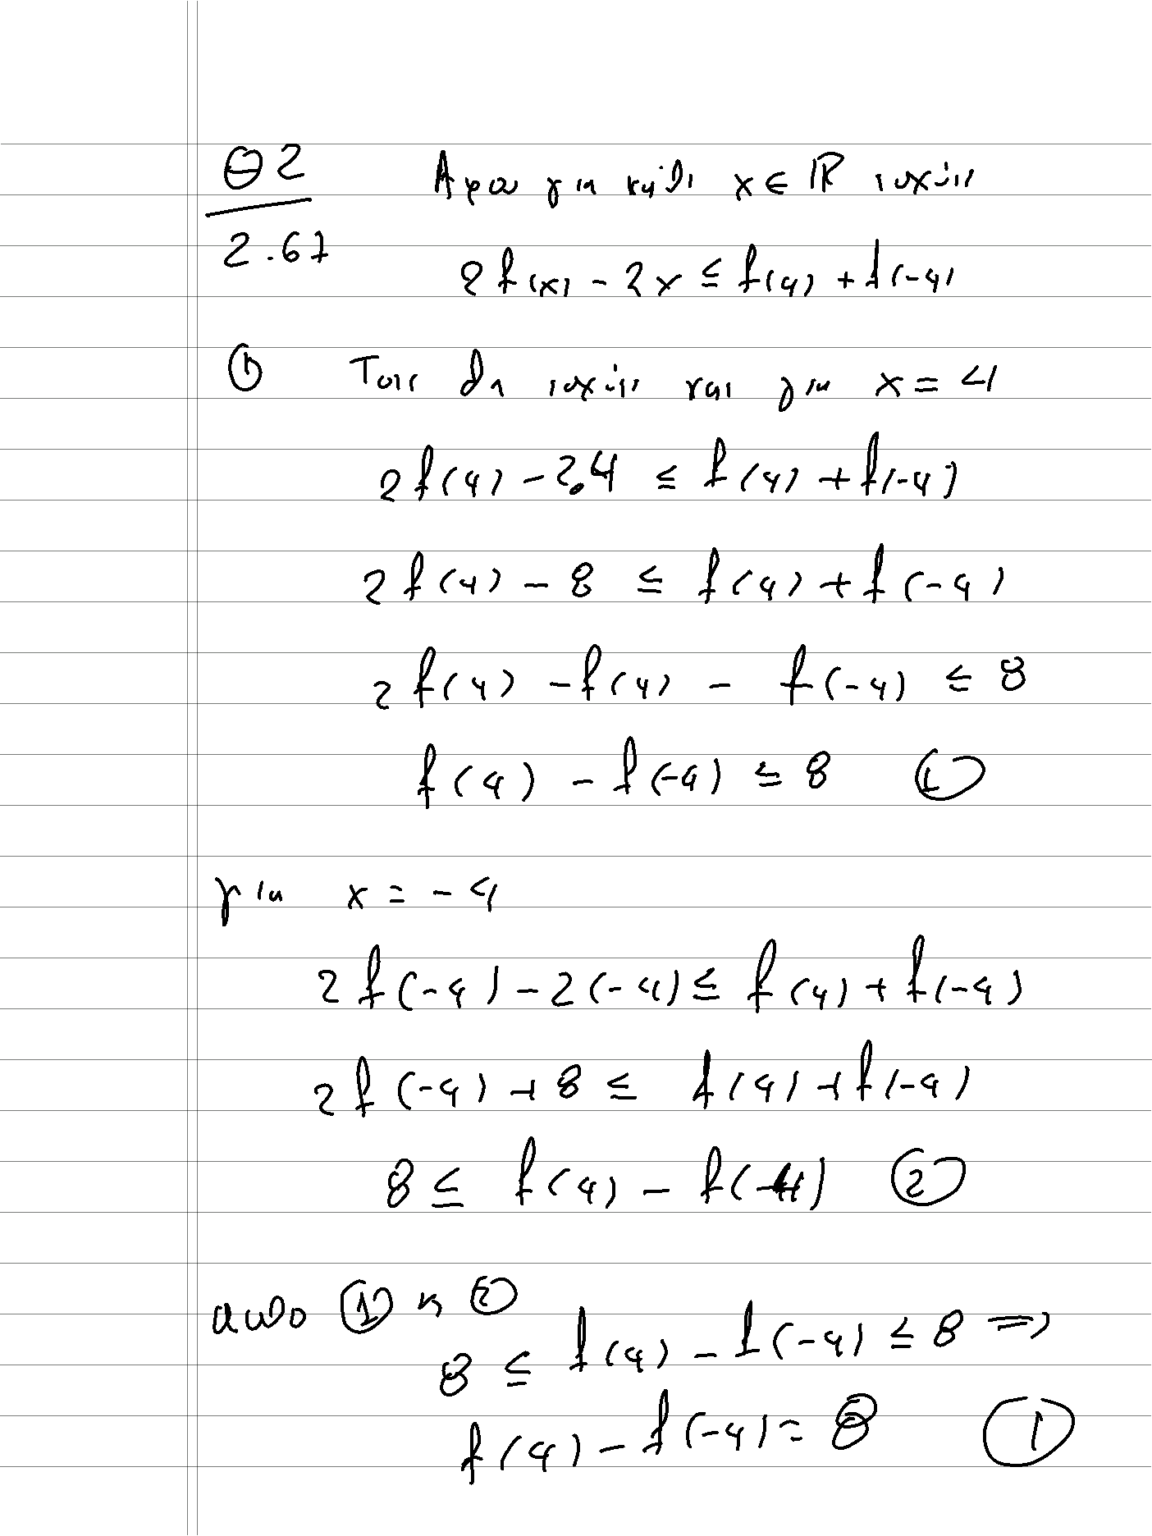 Θ2
2.67
Αφου για κάθε x ∈ ℝ ισχύει
2f(x) - 2x ≤ f(4) + f(-4)
① Τοτε θα ισχύει και για x = 4
2f(4) - 2.4 ≤ f(4) + f(-4)
2f(4) - 8 ≤ f(4) + f(-4)
2f(4) - f(4) - f(-4) ≤ 8
f(4) - f(-4) ≤ 8 ①
για x = -4
2f(-4) - 2(-4) ≤ f(4) + f(-4)
2f(-4) + 8 ≤ f(4) + f(-4)
8 ≤ f(4) - f(-4) ②
απο ① κ ②
8 ≤ f(4) - f(-4) ≤ 8 ⇒
f(4) - f(-4) = 8 ①